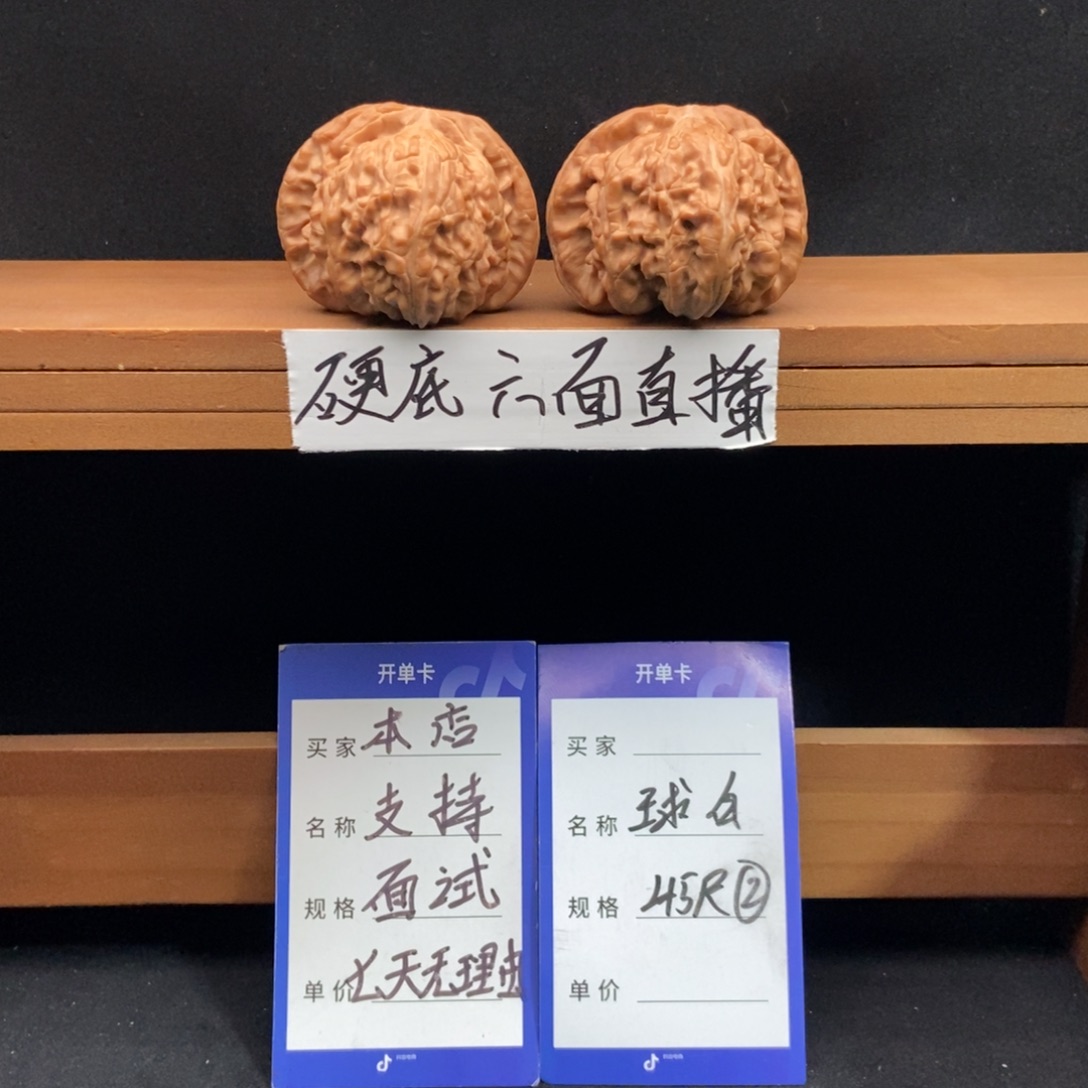 硬底 六面直播
开单卡
买家 本店
名称 支持
规格 面试
单价 七天无理由
开单卡
买家
名称 球白
规格 45R②
单价